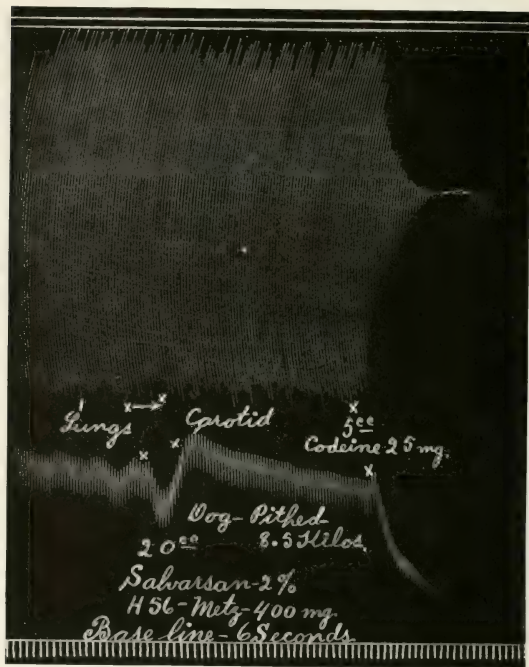 Lungs
Carotid
5cc
Codeine 25 mg.
Dog-Pithed
8.5 Kilos.
20cc
Salvarsan-2%
H56-Metz-400 mg.
Base line-6 Seconds